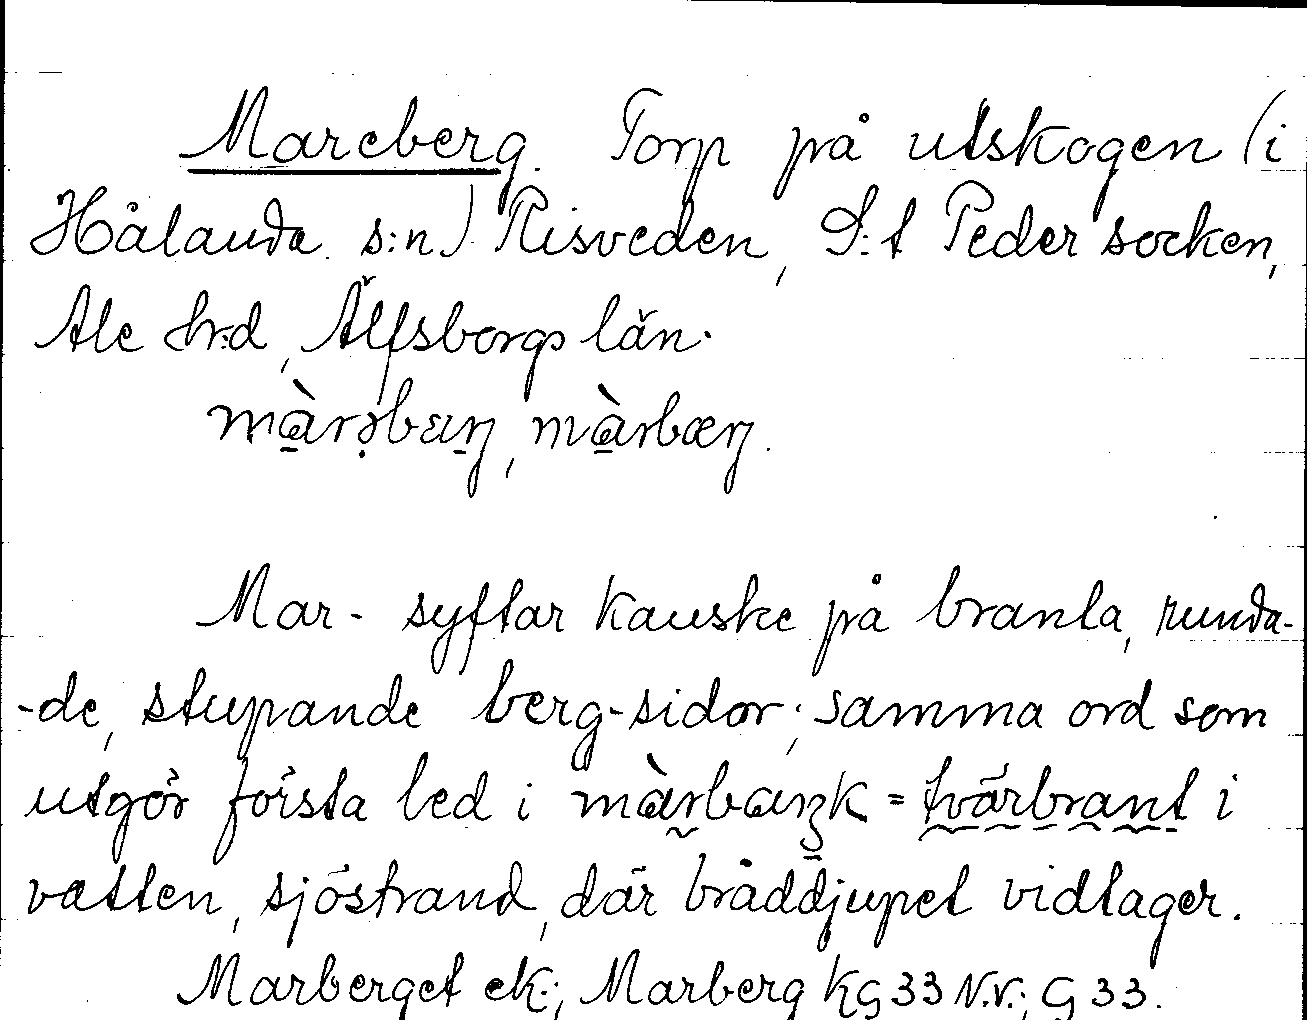 Mareberg. Torp på utskogen (i
Hålanda s:n) Risveden, S:t Peder socken,
Ale h:d, Älfsborgs län.
màrəbærj, màrbærj.
Mar- syftar kanske på branta, runda-
-de, stupande berg-sidor; samma ord som
utgör första led i màrbaŋk = tvärbrant i
vatten, sjöstrand, där bråddjupet vidtager.
Marberget ek.; Marberg KG 33 N.V.; G 33.